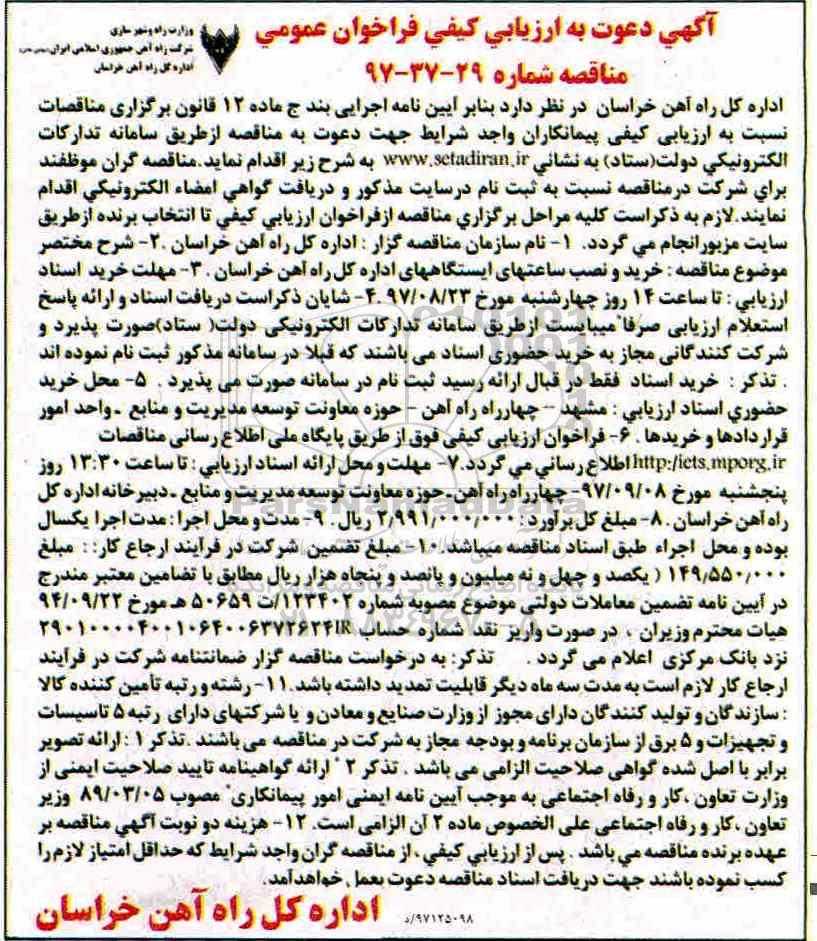 آگهي دعوت به ارزيابي كيفي فراخوان عمومي
مناقصه شماره ۲۹-۳۷-۹۷
وزارت راه و شهر سازی
شرکت راه آهن جمهوری اسلامی ایران
اداره کل راه آهن خراسان
اداره کل راه آهن خراسان در نظر دارد بنابر آیین نامه اجرایی بند ج ماده ۱۲ قانون برگزاری مناقصات
نسبت به ارزیابی کیفی پیمانکاران واجد شرایط جهت دعوت به مناقصه ازطریق سامانه تدارکات
الکترونیکي دولت(ستاد) به نشاني www.setadiran.ir به شرح زیر اقدام نماید.مناقصه گران موظفند
براي شرکت درمناقصه نسبت به ثبت نام درسایت مذکور و دریافت گواهي امضاء الکترونیکي اقدام
نمایند.لازم به ذکراست کلیه مراحل برگزاري مناقصه ازفراخوان ارزیابي کیفي تا انتخاب برنده ازطریق
سایت مزبورانجام می گردد. ۱- نام سازمان مناقصه گزار : اداره کل راه آهن خراسان .۲- شرح مختصر
موضوع مناقصه : خرید و نصب ساعتهای ایستگاههای اداره کل راه آهن خراسان . ۳- مهلت خرید اسناد
ارزیابي : تا ساعت ۱۴ روز چهارشنبه مورخ ۹۷/۰۸/۲۳ .۴- شایان ذکراست دریافت اسناد و ارائه پاسخ
استعلام ارزیابی صرفا"میبایست ازطریق سامانه تدارکات الکترونیکی دولت( ستاد)صورت پذیرد و
شرکت کنندگانی مجاز به خرید حضوری اسناد می باشند که قبلا در سامانه مذکور ثبت نام نموده اند
. تذکر : خرید اسناد فقط در قبال ارائه رسید ثبت نام در سامانه صورت می پذیرد . ۵- محل خرید
حضوري اسناد ارزیابي : مشهد – چهارراه راه آهن – حوزه معاونت توسعه مدیریت و منابع ـ واحد امور
قراردادها و خریدها . ۶- فراخوان ارزیابی کیفی فوق از طریق پایگاه ملی اطلاع رسانی مناقصات
http:/iets.mporg.ir اطلاع رساني مي گردد.۷- مهلت و محل ارائه اسناد ارزیابي : تا ساعت ۱۳:۳۰ روز
پنجشنبه مورخ ۹۷/۰۹/۰۸- چهارراه راه آهن-حوزه معاونت توسعه مدیریت و منابع ـ دبیرخانه اداره کل
راه آهن خراسان . ۸- مبلغ کل برآورد : ۲٫۹۹۱٫۰۰۰٫۰۰۰ ریال . ۹- مدت و محل اجرا : مدت اجرا یکسال
بوده و محل اجراء طبق اسناد مناقصه میباشد.۱۰- مبلغ تضمین شرکت در فرآیند ارجاع کار: : مبلغ
۱۴۹٫۵۵۰٫۰۰۰ ( یکصد و چهل و نه میلیون و پانصد و پنجاه هزار ریال مطابق با تضامین معتبر مندرج
در آیین نامه تضمین معاملات دولتی موضوع مصوبه شماره ۱۲۳۴۰۲/ت ۵۰۶۵۹ هـ مورخ ۹۴/۰۹/۲۲
هیات محترم وزیران ، در صورت واریز نقد شماره حساب IR
نزد بانک مرکزی اعلام می گردد . تذکر: به درخواست مناقصه گزار ضمانتنامه شرکت در فرآیند
ارجاع کار لازم است به مدت سه ماه دیگر قابلیت تمدید داشته باشد.۱۱- رشته و رتبه تأمین کننده کالا
: سازندگان و تولید کنندگان دارای مجوز از وزارت صنایع و معادن و یا شرکتهای دارای رتبه ۵ تاسیسات
و تجهیزات و ۵ برق از سازمان برنامه و بودجه مجاز به شرکت در مناقصه می باشند .تذکر ۱ : ارائه تصویر
برابر با اصل شده گواهی صلاحیت الزامی می باشد . تذکر ۲ " ارائه گواهینامه تایید صلاحیت ایمنی از
وزارت تعاون ،کار و رفاه اجتماعی به موجب آیین نامه ایمنی امور پیمانکاری" مصوب ۸۹/۰۳/۰۵ وزیر
تعاون ،کار و رفاه اجتماعی علی الخصوص ماده ۲ آن الزامی است. ۱۲- هزینه دو نوبت آگهي مناقصه بر
عهده برنده مناقصه مي باشد . پس از ارزیابي کیفي ، از مناقصه گران واجد شرایط که حداقل امتیاز لازم را
کسب نموده باشند جهت دریافت اسناد مناقصه دعوت بعمل خواهدآمد.
۹۷۱۲۵۰۹۸/د
اداره کل راه آهن خراسان
ParsNamadData